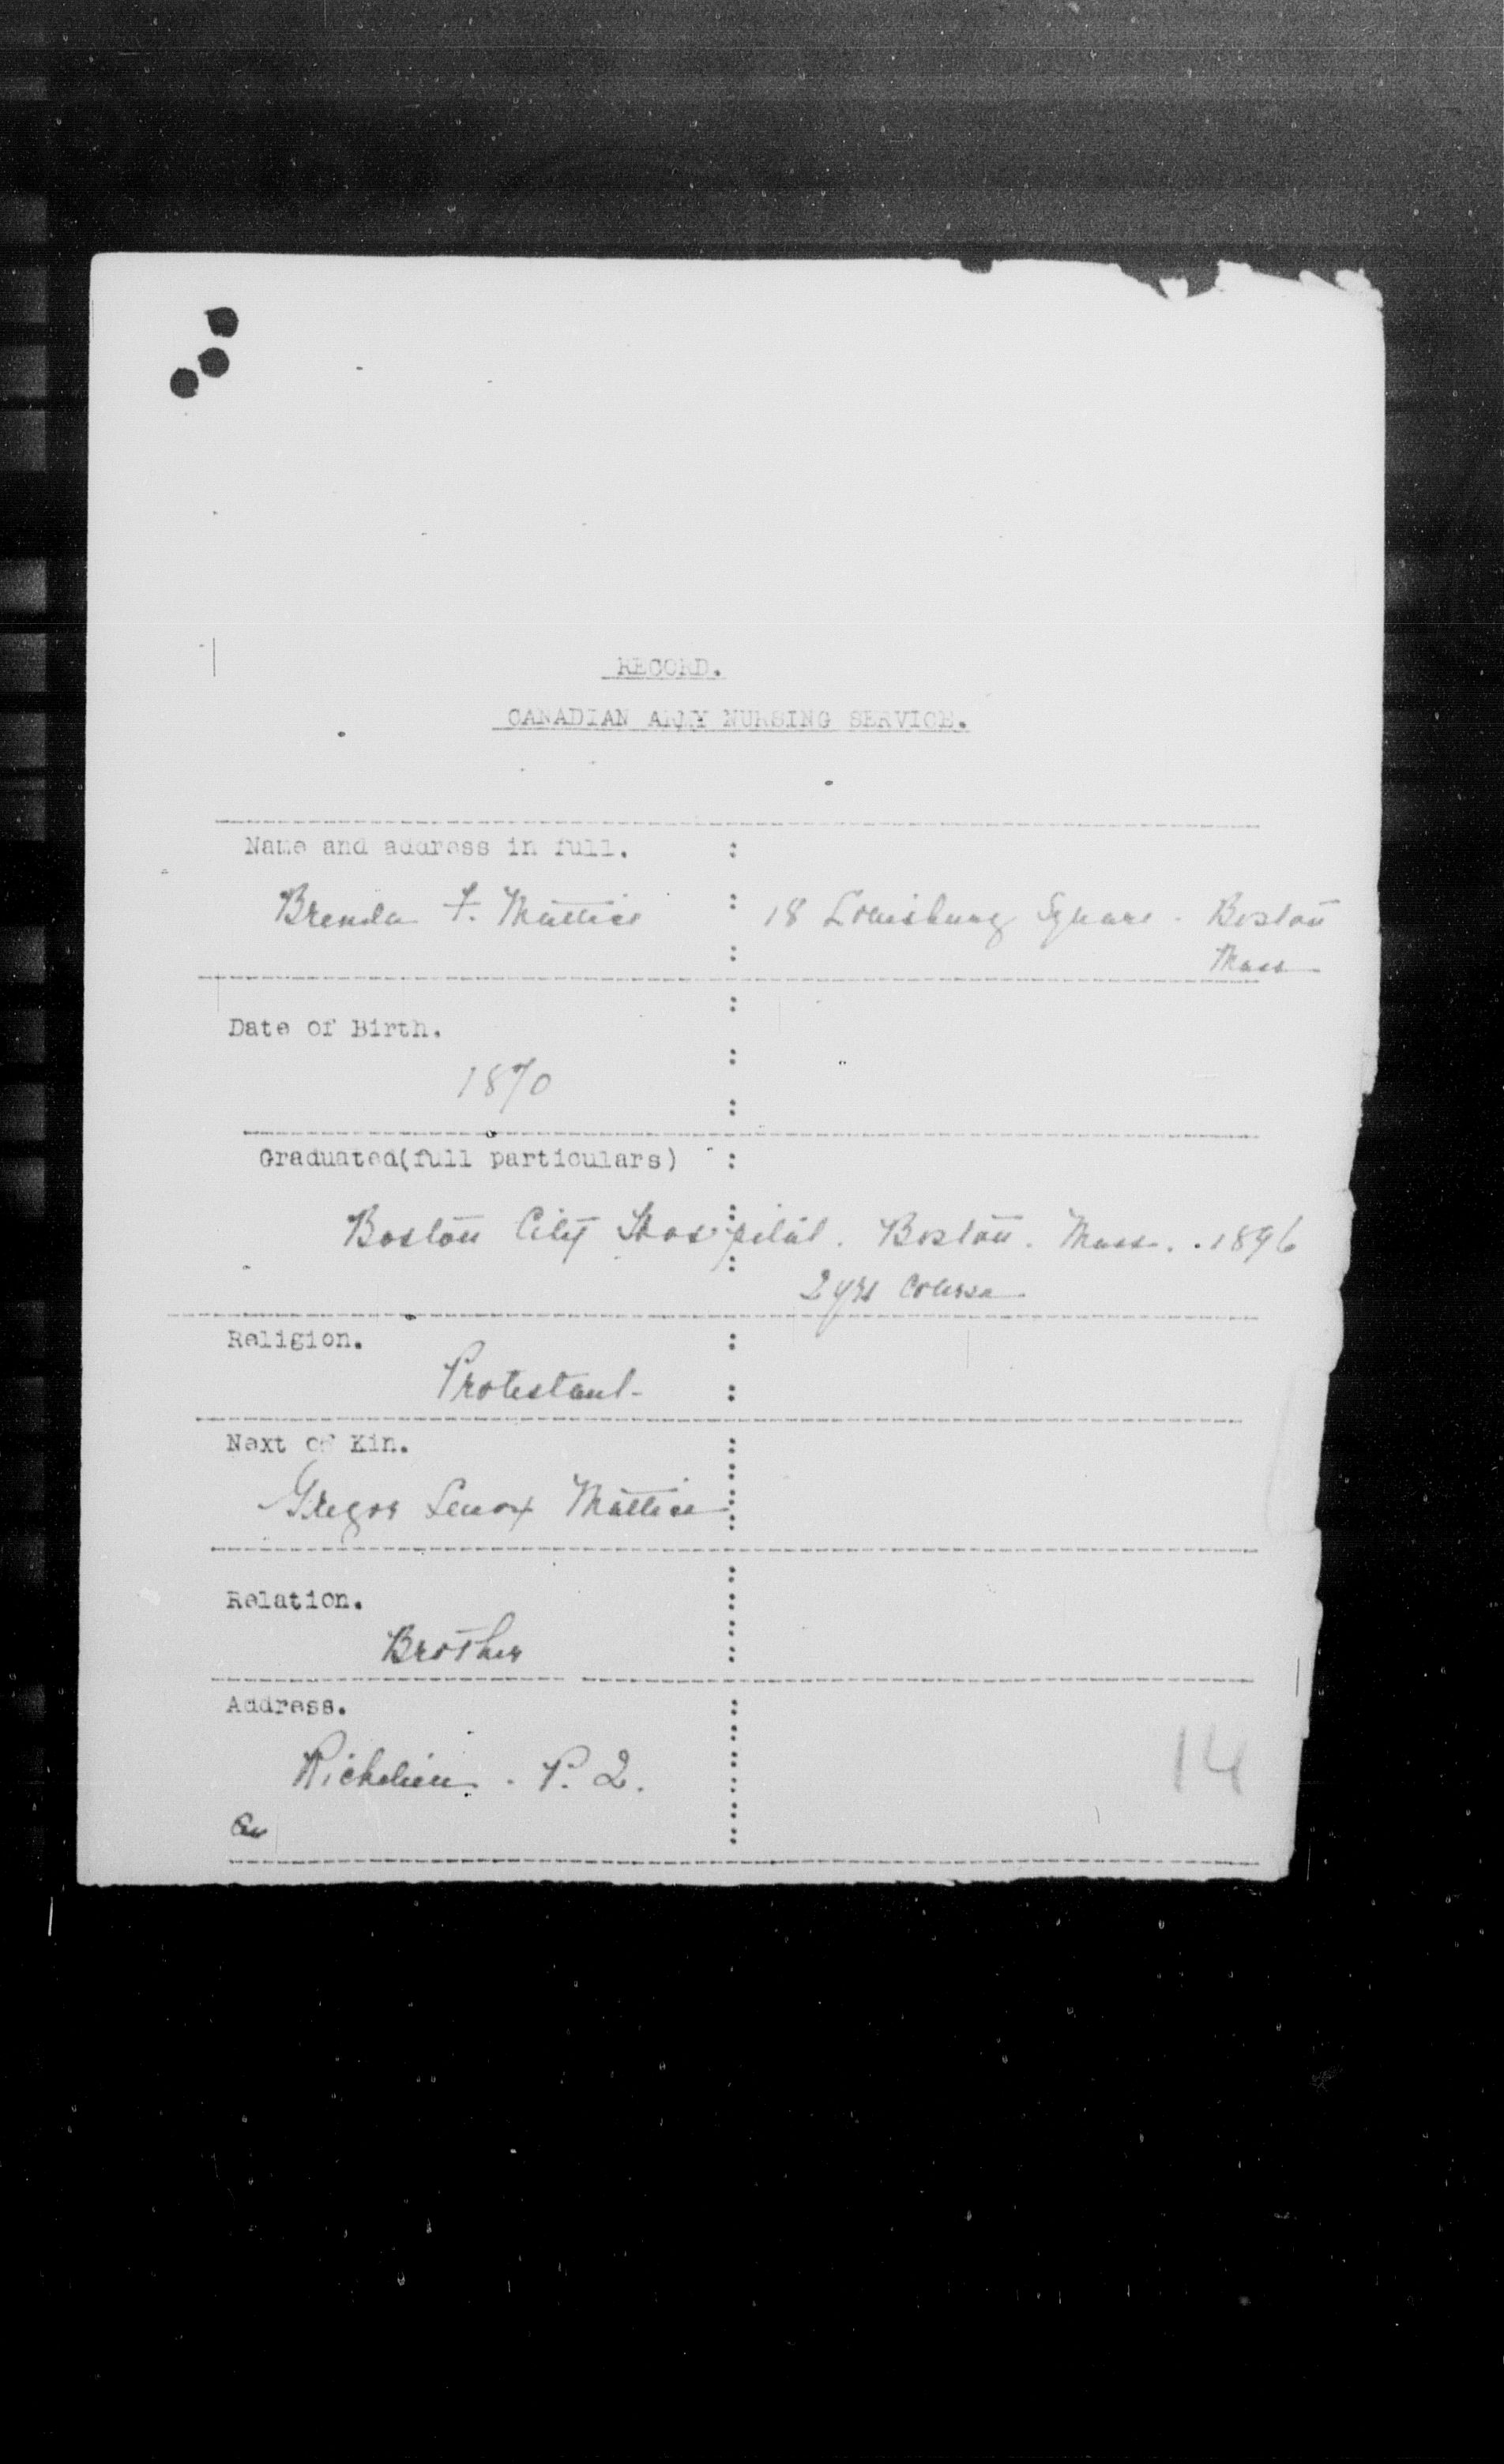 RECORD.
CANADIAN ARMY NURSING SERVICE.
Name and address in full. :
Brenda F. Mattice : 18 Louisburg Square - Boston
Mass
Date of Birth.
1870
Graduated(full particulars) :
Boston City Hospital. Boston. Mass. . 1896
2 yrs course
Religion. :
Protestant -
Next of Kin.
Gregor Lenox Mattice
Relation.
Brother
Address.
Richelieu . P. Q.
14